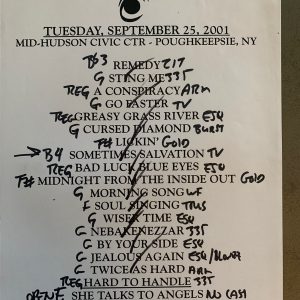 TUESDAY, SEPTEMBER 25, 2001
MID-HUDSON CIVIC CTR - POUGHKEEPSIE, NY
REMEDY Z17
G STING ME 335
REG A CONSPIRACY ARM
G GO FASTER TV
REG GREASY GRASS RIVER ES4
G CURSED DIAMOND BURST
F# LICKIN' GOLD
→ B4 SOMETIMES SALVATION TV
REG BAD LUCK BLUE EYES ES4
F# MIDNIGHT FROM THE INSIDE OUT GOLD
G MORNING SONG WF
F SOUL SINGING TMS
G WISER TIME ES4
C NEBAKENEZZAR 335
G BY YOUR SIDE ES4
C JEALOUS AGAIN ES4/
C TWICE AS HARD ARM
REG HARD TO HANDLE 335
OPEN E SHE TALKS TO ANGELS NO CAST